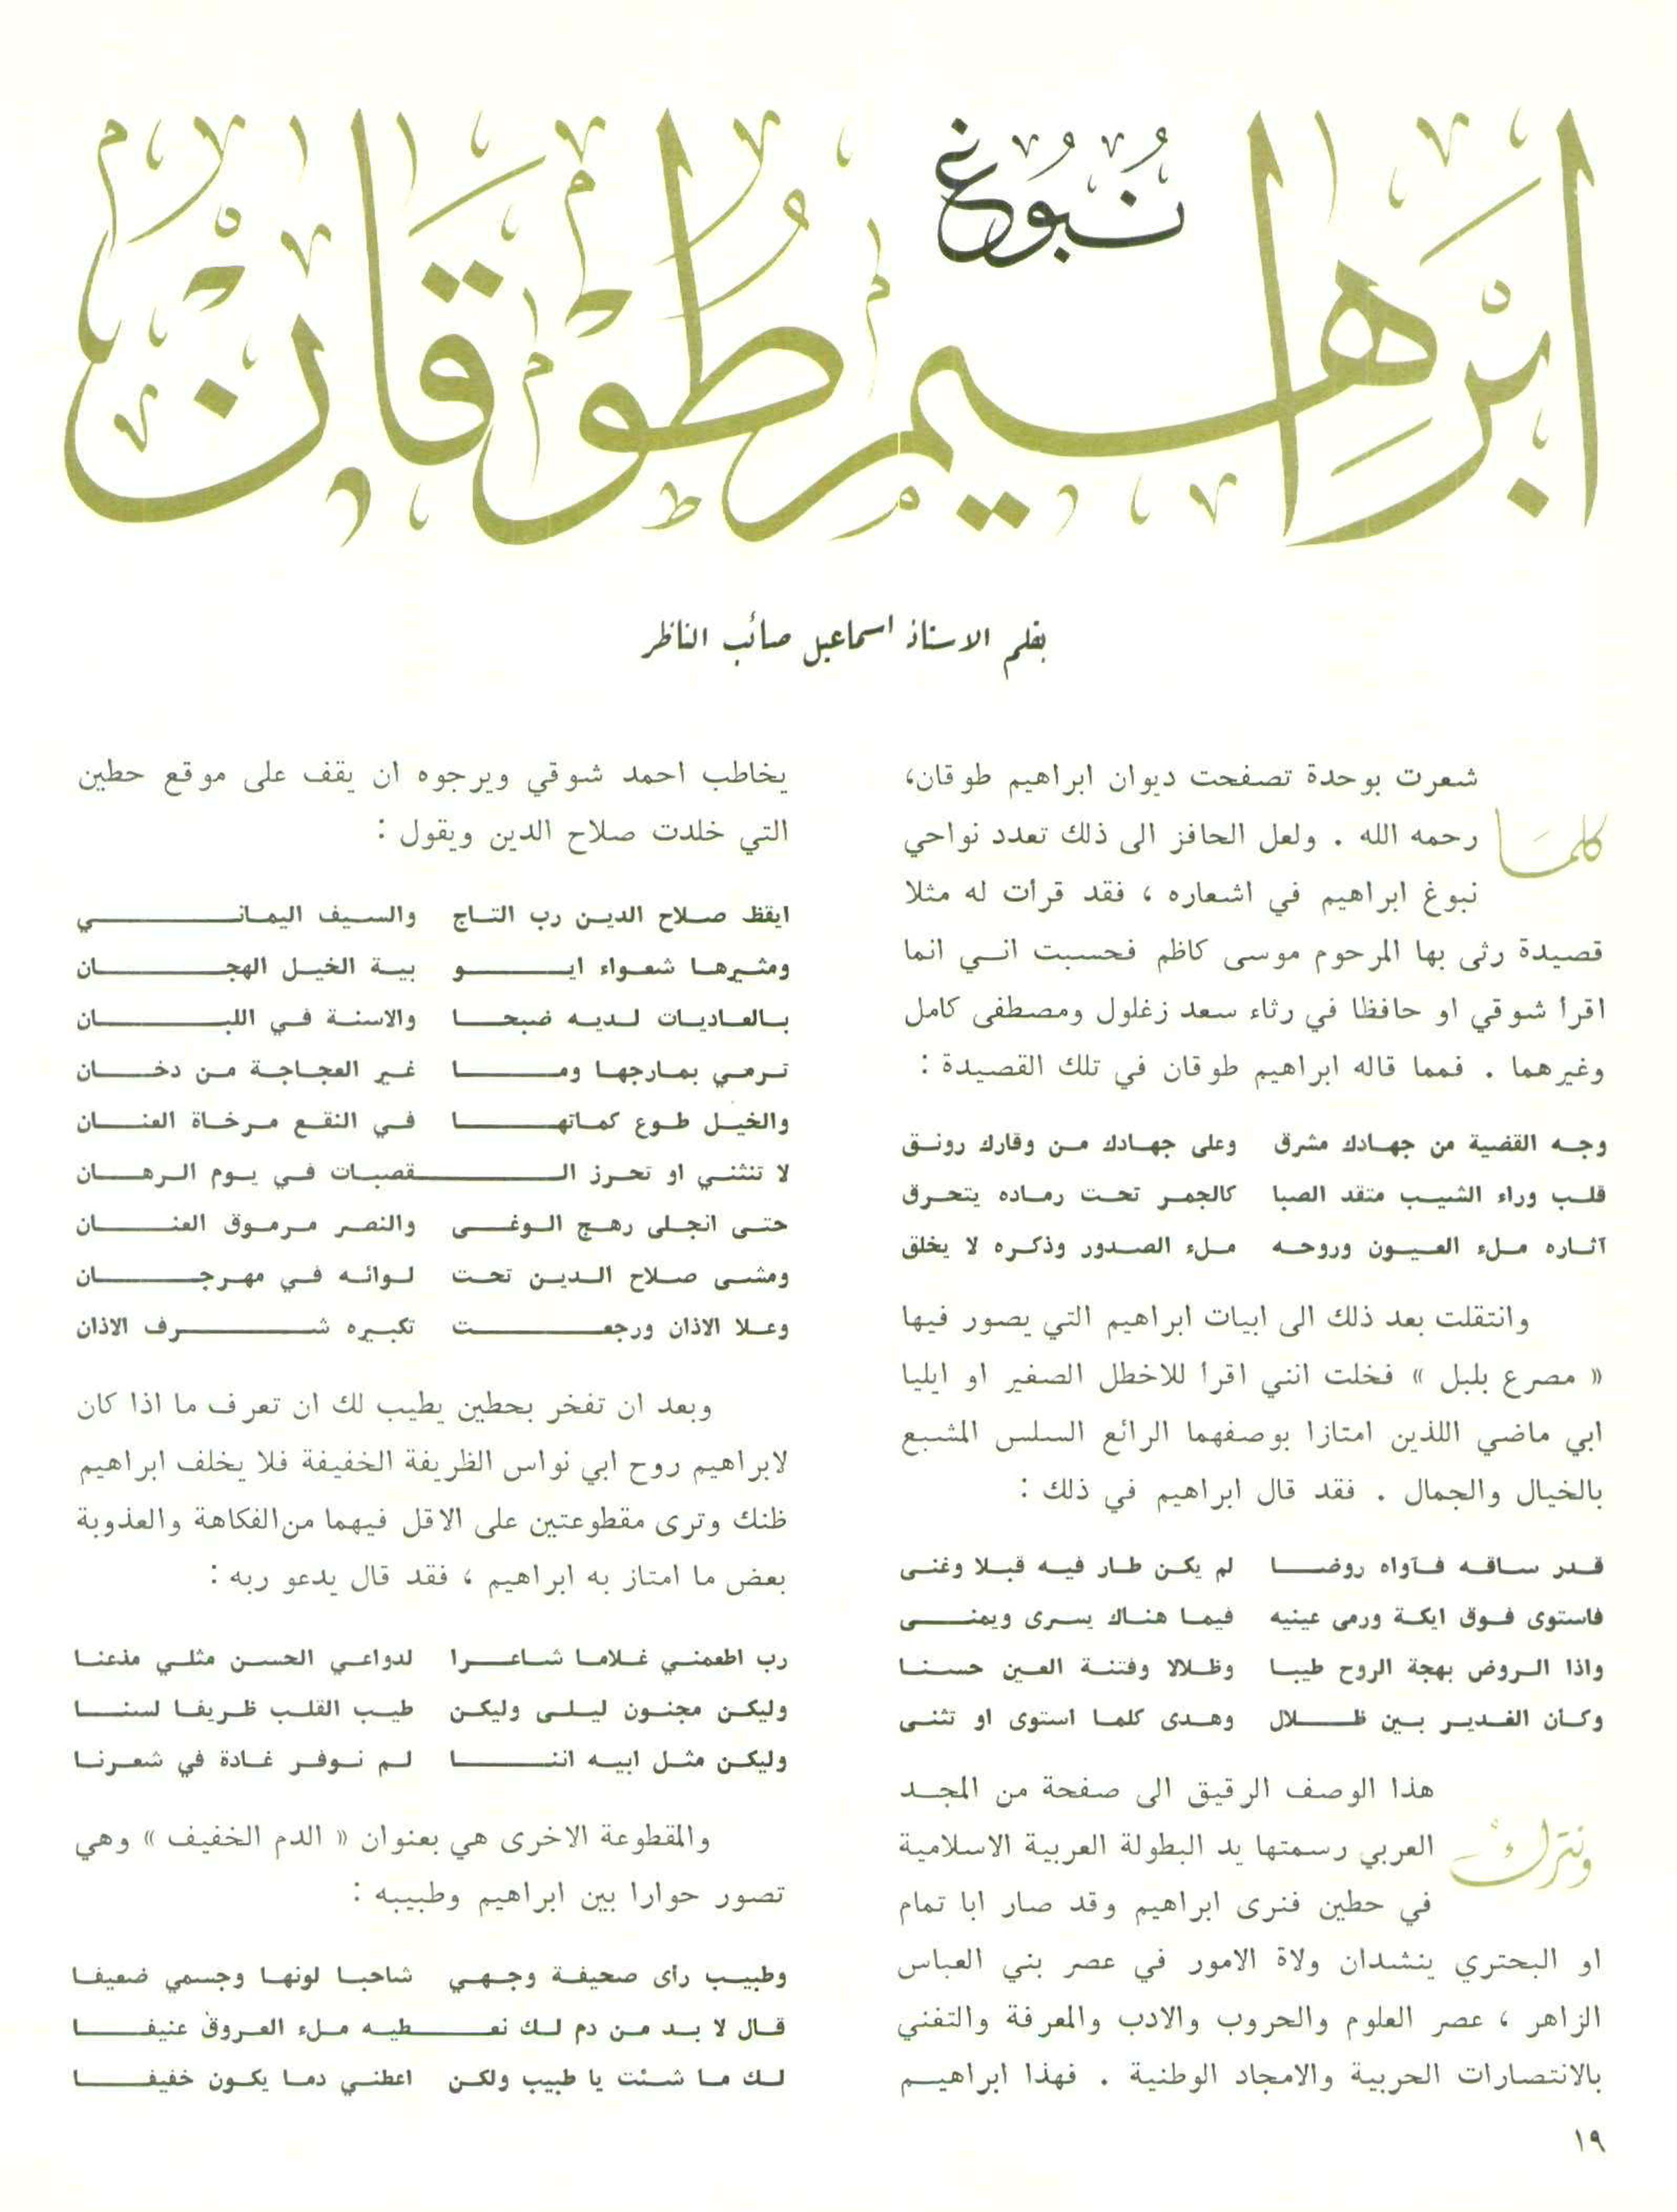 نُبُوغُ
ابْرَهِيم طُوْقَانْ
بقلم الاستاذ اسماعيل صائب الناظر
كلما شعرت بوحدة تصفحت ديوان ابراهيم طوقان،
رحمه الله . ولعل الحافز الى ذلك تعدد نواحي
نبوغ ابراهيم في اشعاره ، فقد قرأت له مثلا
قصيدة رثى بها المرحوم موسى كاظم فحسبت انـي انما
اقرأ شوقي او حافظا في رثاء سعد زغلول ومصطفى كامل
وغيرهما . فمما قاله ابراهيم طوقان في تلك القصيدة :
وجه القضية من جهادك مشرق وعلى جهادك من وقارك رونق
قلب وراء الشيب متقد الصبا كالجمر تحت رماده يتحرق
آثاره ملء العيون وروحه ملء الصدور وذكره لا يخلق
وانتقلت بعد ذلك الى ابيات ابراهيم التي يصور فيها
« مصرع بلبل » فخلت انني اقرأ للاخطل الصغير او ايليا
ابي ماضي اللذين امتازا بوصفهما الرائع السلس المشبع
بالخيال والجمال . فقد قال ابراهيم في ذلك :
قدر ساقه فآواه روضا لم يكن طار فيه قبلا وغنى
فاستوى فوق ايكة ورمى عينيه فيما هناك يسرى ويمنى
واذا الروض بهجة الروح طيبا وظلالا وفتنة العين حسنا
وكأن الغدير بين ظلال وهدى كلما استوى او تثنى
ونترك هذا الوصف الرقيق الى صفحة من المجد
العربي رسمتها يد البطولة العربية الاسلامية
في حطين فنرى ابراهيم وقد صار ابا تمام
او البحتري ينشدان ولاة الامور في عصر بني العباس
الزاهر ، عصر العلوم والحروب والادب والمعرفة والتغني
بالانتصارات الحربية والامجاد الوطنية . فهذا ابراهيم
يخاطب احمد شوقي ويرجوه ان يقف على موقع حطين
التي خلدت صلاح الدين ويقول :
ايقظ صلاح الدين رب التاج والسيف اليماني
ومثيرها شعواء ايو بية الخيل الهجان
بالعاديات لديه ضبحا والاسنة في اللبان
ترمي بمارجها وما غير العجاجة من دخان
والخيل طوع كماتها في النقع مرخاة العنان
لا تنثني او تحرز الـقصبات في يوم الرهان
حتى انجلى رهج الوغى والنصر مرموق العنان
ومشى صلاح الدين تحت لوائه في مهرجان
وعلا الاذان ورجعت تكبيره شرف الاذان
وبعد ان تفخر بحطين يطيب لك ان تعرف ما اذا كان
لابراهيم روح ابي نواس الظريفة الخفيفة فلا يخلف ابراهيم
ظنك وترى مقطوعتين على الاقل فيهما من الفكاهة والعذوبة
بعض ما امتاز به ابراهيم ، فقد قال يدعو ربه :
رب اطعمني غلاما شاعرا لدواعي الحسن مثلي مذعنا
وليكن مجنون ليلى وليكن طيب القلب ظريفا لسنا
وليكن مثل ابيه اننا لم نوفر غادة في شعرنا
والمقطوعة الاخرى هي بعنوان « الدم الخفيف » وهي
تصور حوارا بين ابراهيم وطبيبه :
وطبيب رأى صحيفة وجهي شاحبا لونها وجسمي ضعيفا
قال لا بد من دم لك نعـطيه ملء العروق عنيفا
لك ما شئت يا طبيب ولكن اعطني دما يكون خفيفا
١٩